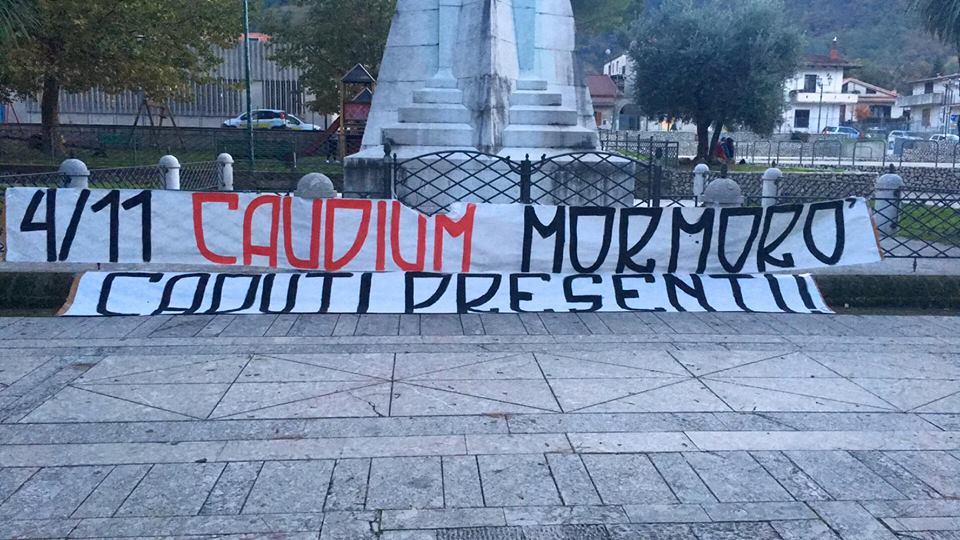 4/11 CAUDIUM MORMORO'
CADUTI PRESENTI!!